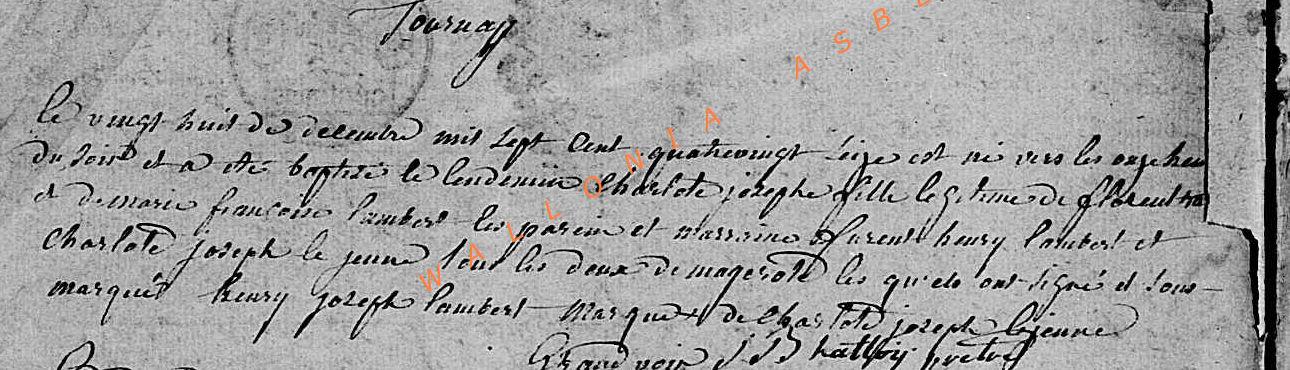 Tournay
le vingt huit de decembre mil sept cent quatrevingt seize est né vers les onze heu
du soir et a eté baptisé le lendemain Charlote josephe fille legitime de florent
et de marie françoise lambert les parein et marraine furent henry lambert et
Charlote joseph le jeune tous les deux de magerote les quels ont signé et sous-
marqués henry joseph lambert marque + de Charlote joseph lejeune
prêtre
WALLONIA ASBL